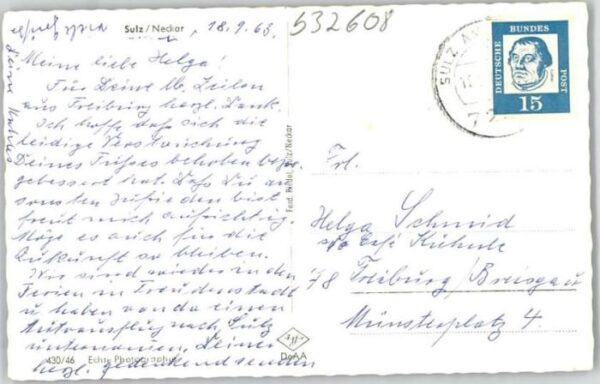 Sulz/Neckar
18.9.63.
532608
Meine liebe Helga!
Für Deine lb. Zeilen
aus Freiburg herzl. Dank.
Ich hoffe, daß sich die
leidige Verstauchung
Deines Fußes behoben bezw.
gebessert hat. Daß Du an-
sonsten zufrieden bist
freut mich aufrichtig.
Möge es auch für die
Zukunft so bleiben.
Wir sind wieder in den
Ferien in Freudenstadt
u haben von da einen
Autoausflug nach Sulz
unternommen. Deiner
herzl. gedenkend senden
430/46 Echte Photographie
DeAA
SULZ AM
DEUTSCHE BUNDES POST
15
Frl.
Helga Schmid
c/o Café
78 Freiburg/Breisgau
Münsterplatz 4.